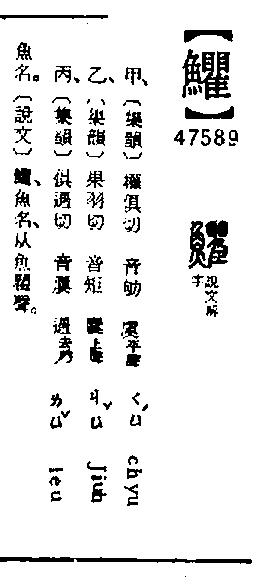 47589
說文解字
甲、〔集韻〕權俱切 音劬 虞平聲 ㄑㄩˊ chyu
乙、〔集韻〕果羽切 音矩 麌上聲 ㄐㄩˇ jiuh
丙、〔集韻〕俱遇切 音屨 遇去聲 ㄌㄩˇ leu
魚名。〔說文〕魚名、从魚瞿聲。